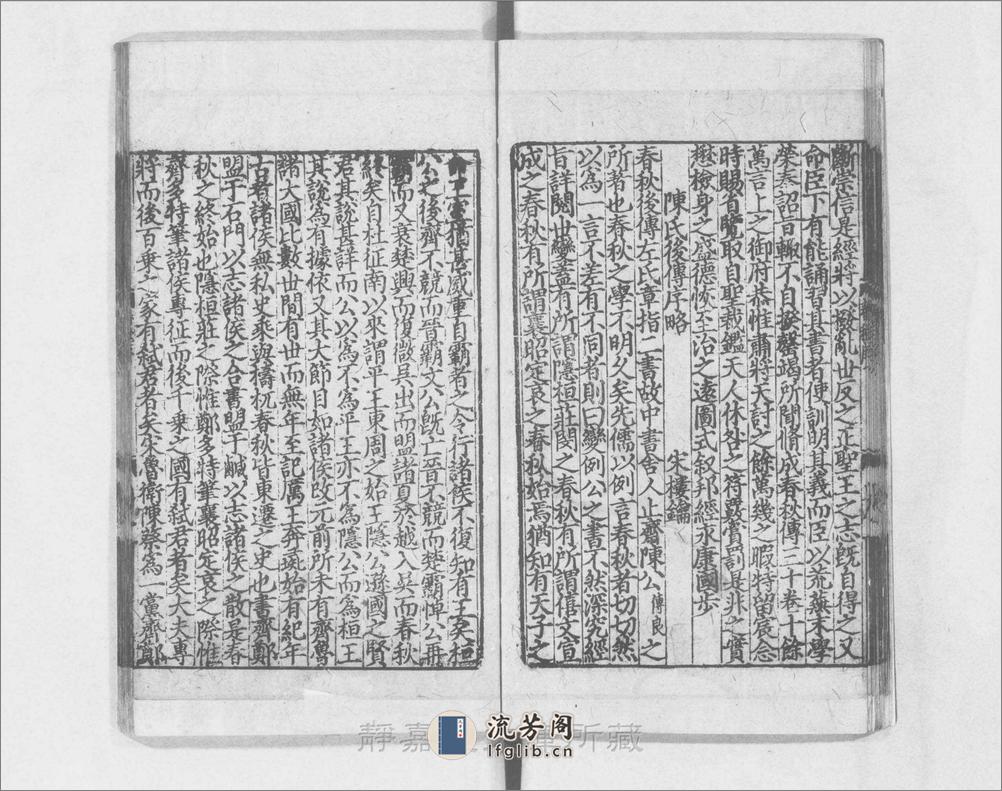 斷崇信是經將以撥亂世反之正聖王之志旣自得之又
命臣下有能誦習其書者使訓明其義而臣以荒蕪末學
榮奉詔旨輒不自揆罄竭所聞脩成春秋傳三十卷十餘
萬言上之御府恭惟肅將天討之餘萬幾之暇特留宸念
時賜省覽取自聖裁鑑天人休咎之符覈賞罰是非之實
懋檢身之盛德恢至治之遠圖式叙邦經永康國步
陳氏後傳序略 宋樓鑰
春秋後傳左氏章指二書故中書舍人止齋陳公傅良之
所著也春秋之學不明久矣先儒以例言春秋者切切然
以為一言不差有不同者則曰變例公之書不然深究經
旨詳閱世變蓋有所謂隱桓莊閔之春秋有所謂僖文宣
成之春秋有所謂襄昭定哀之春秋始焉猶知有天子之
命王室猶甚威重自霸者之令行諸侯不復知有王矣桓
公之後齊不競而晉霸文公旣亡晉不競而楚霸悼公再
霸而又衰楚興而復微吳出而盟諸夏於越入吳而春秋
終矣自杜征南以來謂平王東周之始王隱公遜國之賢
君其說甚詳而公以為不為平王亦不為隱公而為桓王
其說為有據依又其大節目如諸侯改元前所未有齊魯
諸大國比數世間有世而無年至記厲王奔彘始有紀年
古者諸侯無私史乘與檮杌春秋皆東遷之史也書齊鄭
盟于石門以志諸侯之合書盟于鹹以志諸侯之散是春
秋之終始也隱桓莊之際惟鄭多特筆襄昭定哀之際惟
齊多特筆諸侯專征而後千乘之國有弒君者矣大夫專
將而後百乘之家有弒君者矣宋魯衛陳蔡為一黨齊鄭
靜嘉 所藏
流芳阁
lfglib.cn